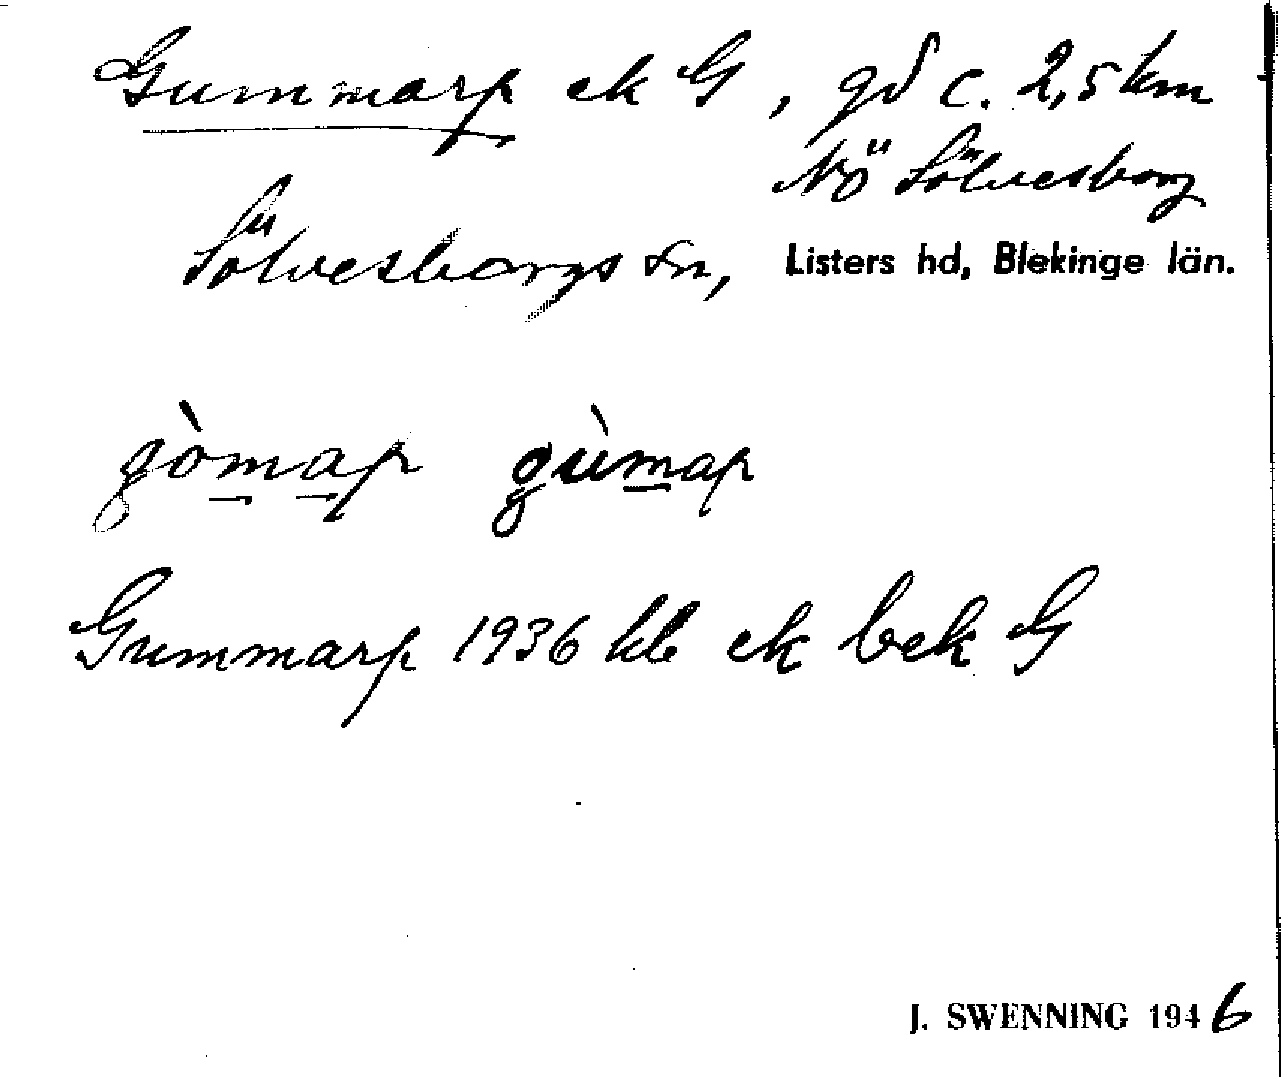 Gummarp ek G, gd c. 2,5 km
NÖ Sölvesborg
Sölvesborgs sn, Listers hd, Blekinge län.
gòmap gùmap
Gummarp 1936 kb ek bek G
J. SWENNING 1946